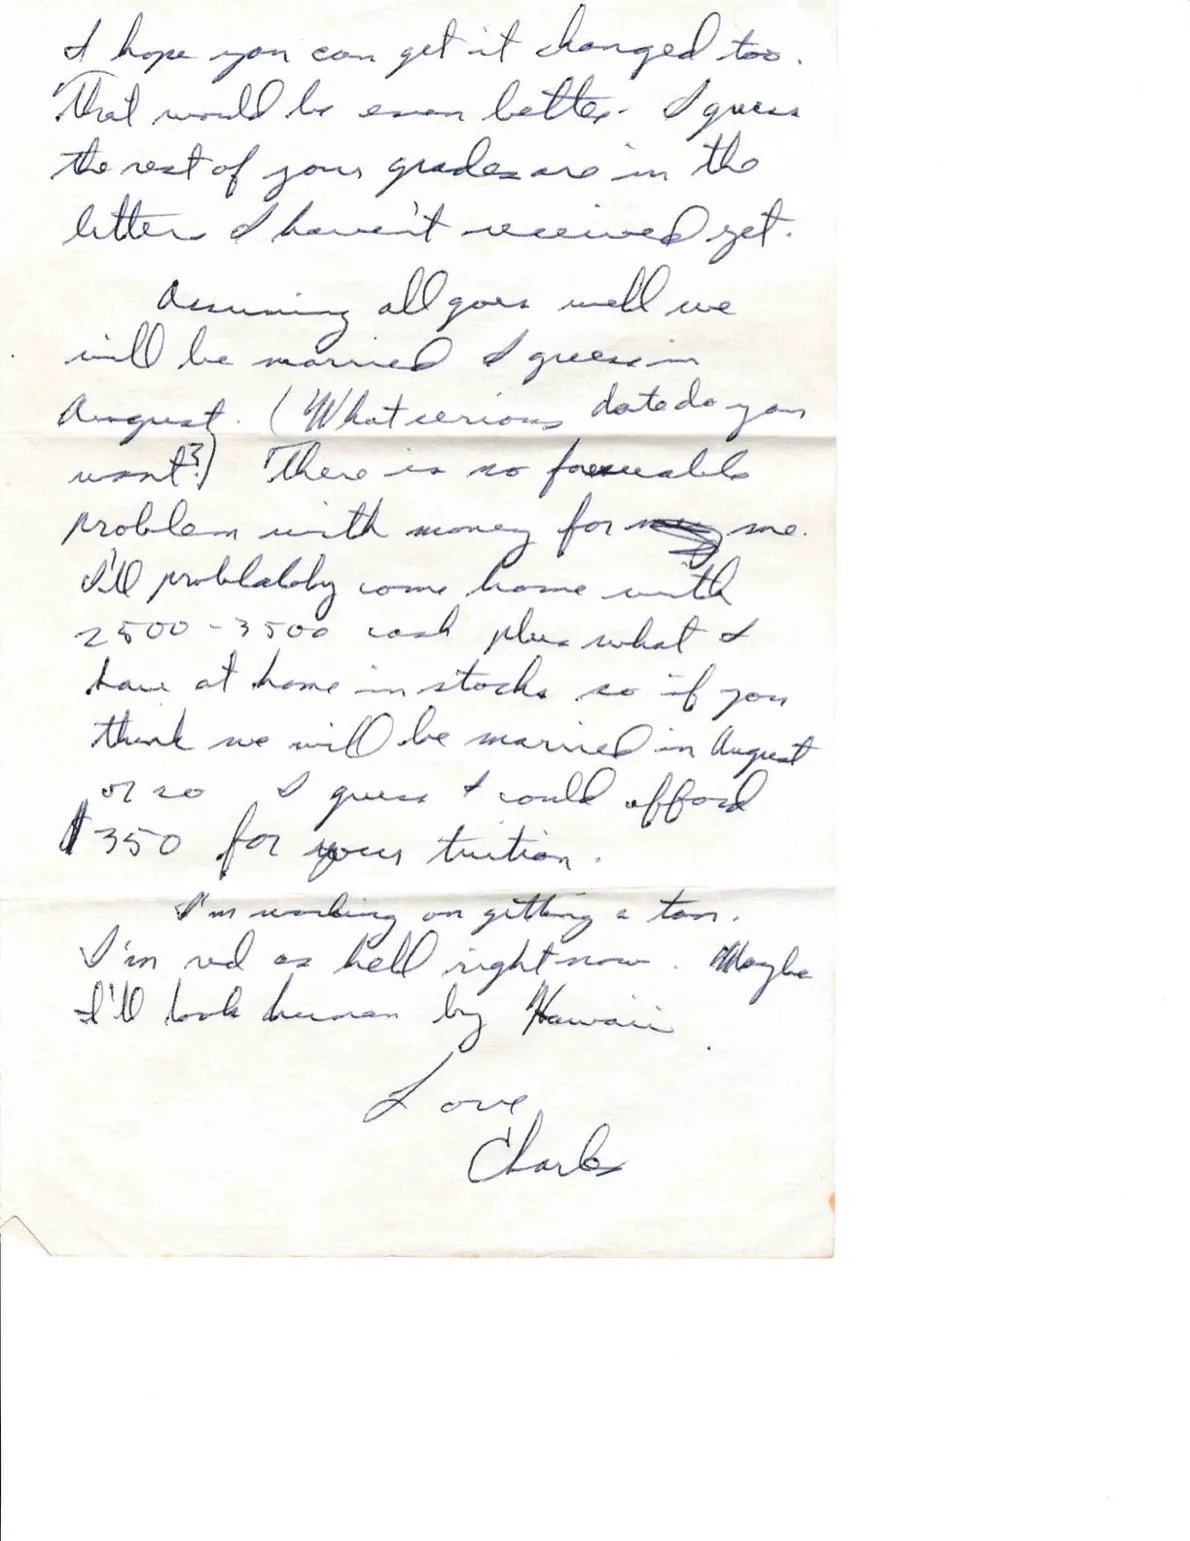 I hope you can get it changed too.
That would be even better. I guess
the rest of your grades are in the
letter I haven't received yet.
Assuming all goes well we
will be married I guess in
August. (What serious date do you
want?) There is no foreseeable
problem with money for me.
I'll problabably come home with
2500-3500 cash plus what I
have at home in stocks so if you
think we will be married in August
or so I guess I could afford
$350 for your tuition.
I'm working on getting a tan.
I'm red as hell right now. Maybe
I'll look human by Hawaii.
Love
Charles